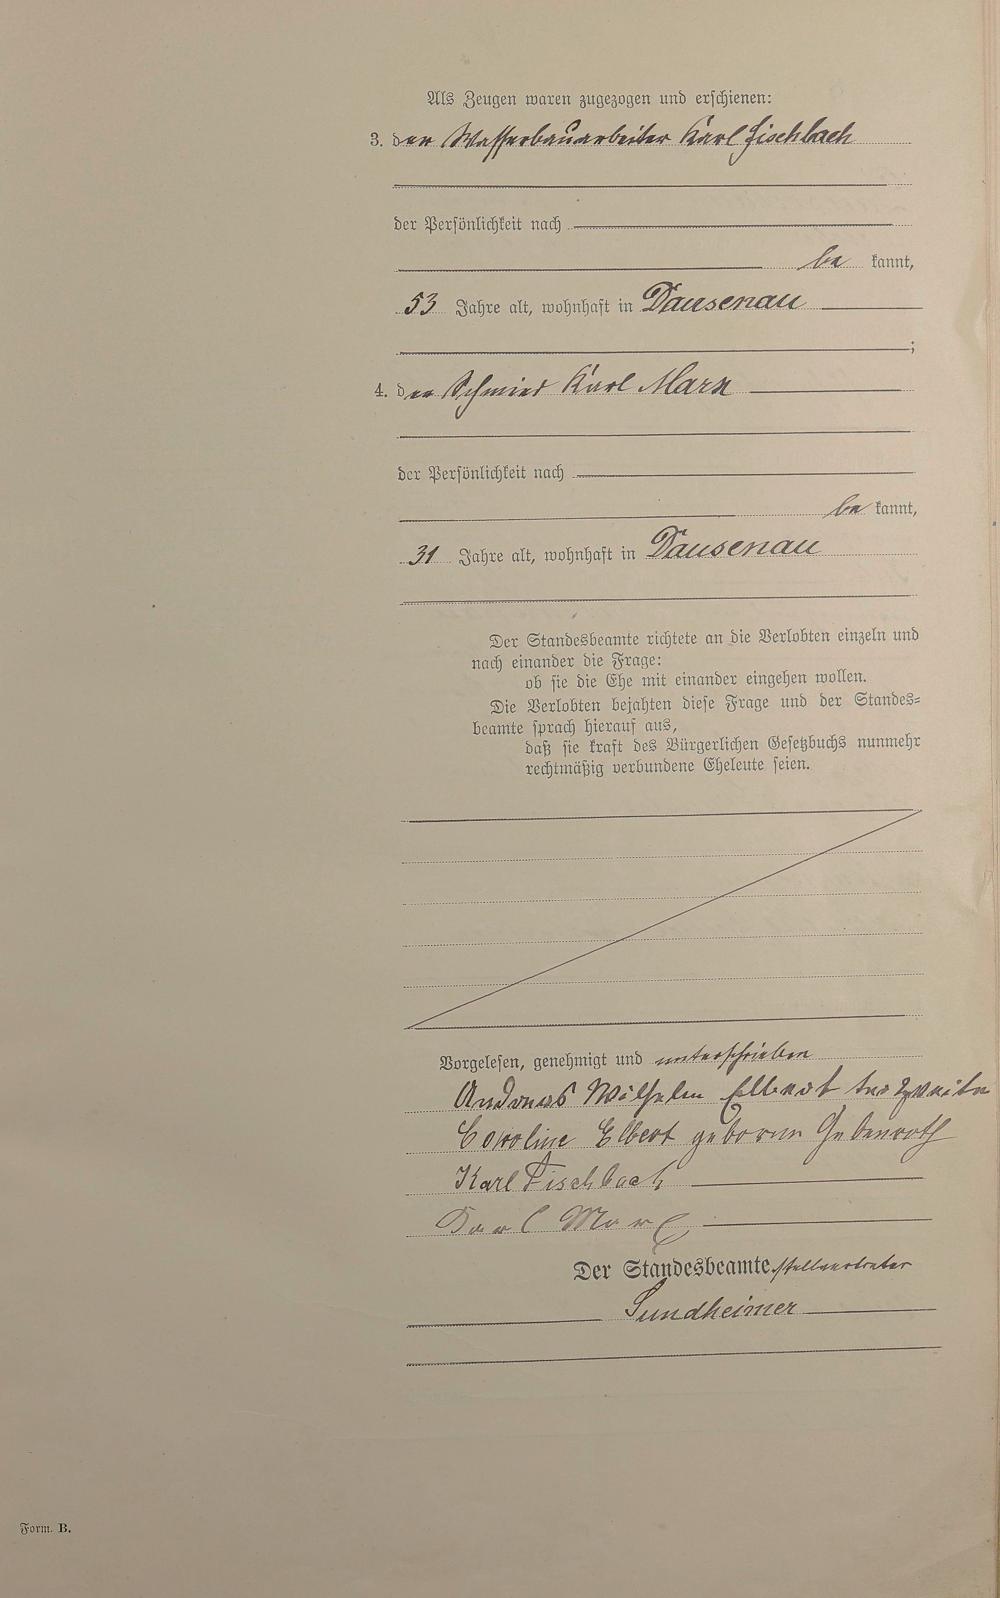 Als Zeugen waren zugezogen und erschienen:
3. der Wasserbauarbeiter Karl Fischbach
der Persönlichkeit nach
be kannt,
53 Jahre alt, wohnhaft in Dausenau
;
4. der Schmied Karl Marx
der Persönlichkeit nach
be kannt,
31 Jahre alt, wohnhaft in Dausenau
Der Standesbeamte richtete an die Verlobten einzeln und
nach einander die Frage:
ob sie die Ehe mit einander eingehen wollen.
Die Verlobten bejahten diese Frage und der Standes=
beamte sprach hierauf aus,
daß sie kraft des Bürgerlichen Gesetzbuchs nunmehr
rechtmäßig verbundene Eheleute seien.
Vorgelesen, genehmigt und unterschrieben
Andreas Wilhelm Elbert der zweite
Caroline Elbert geboren
Karl Fischbach
Karl Marx
Der Standesbeamte stellvertreter
Sundheimer
Form. B.